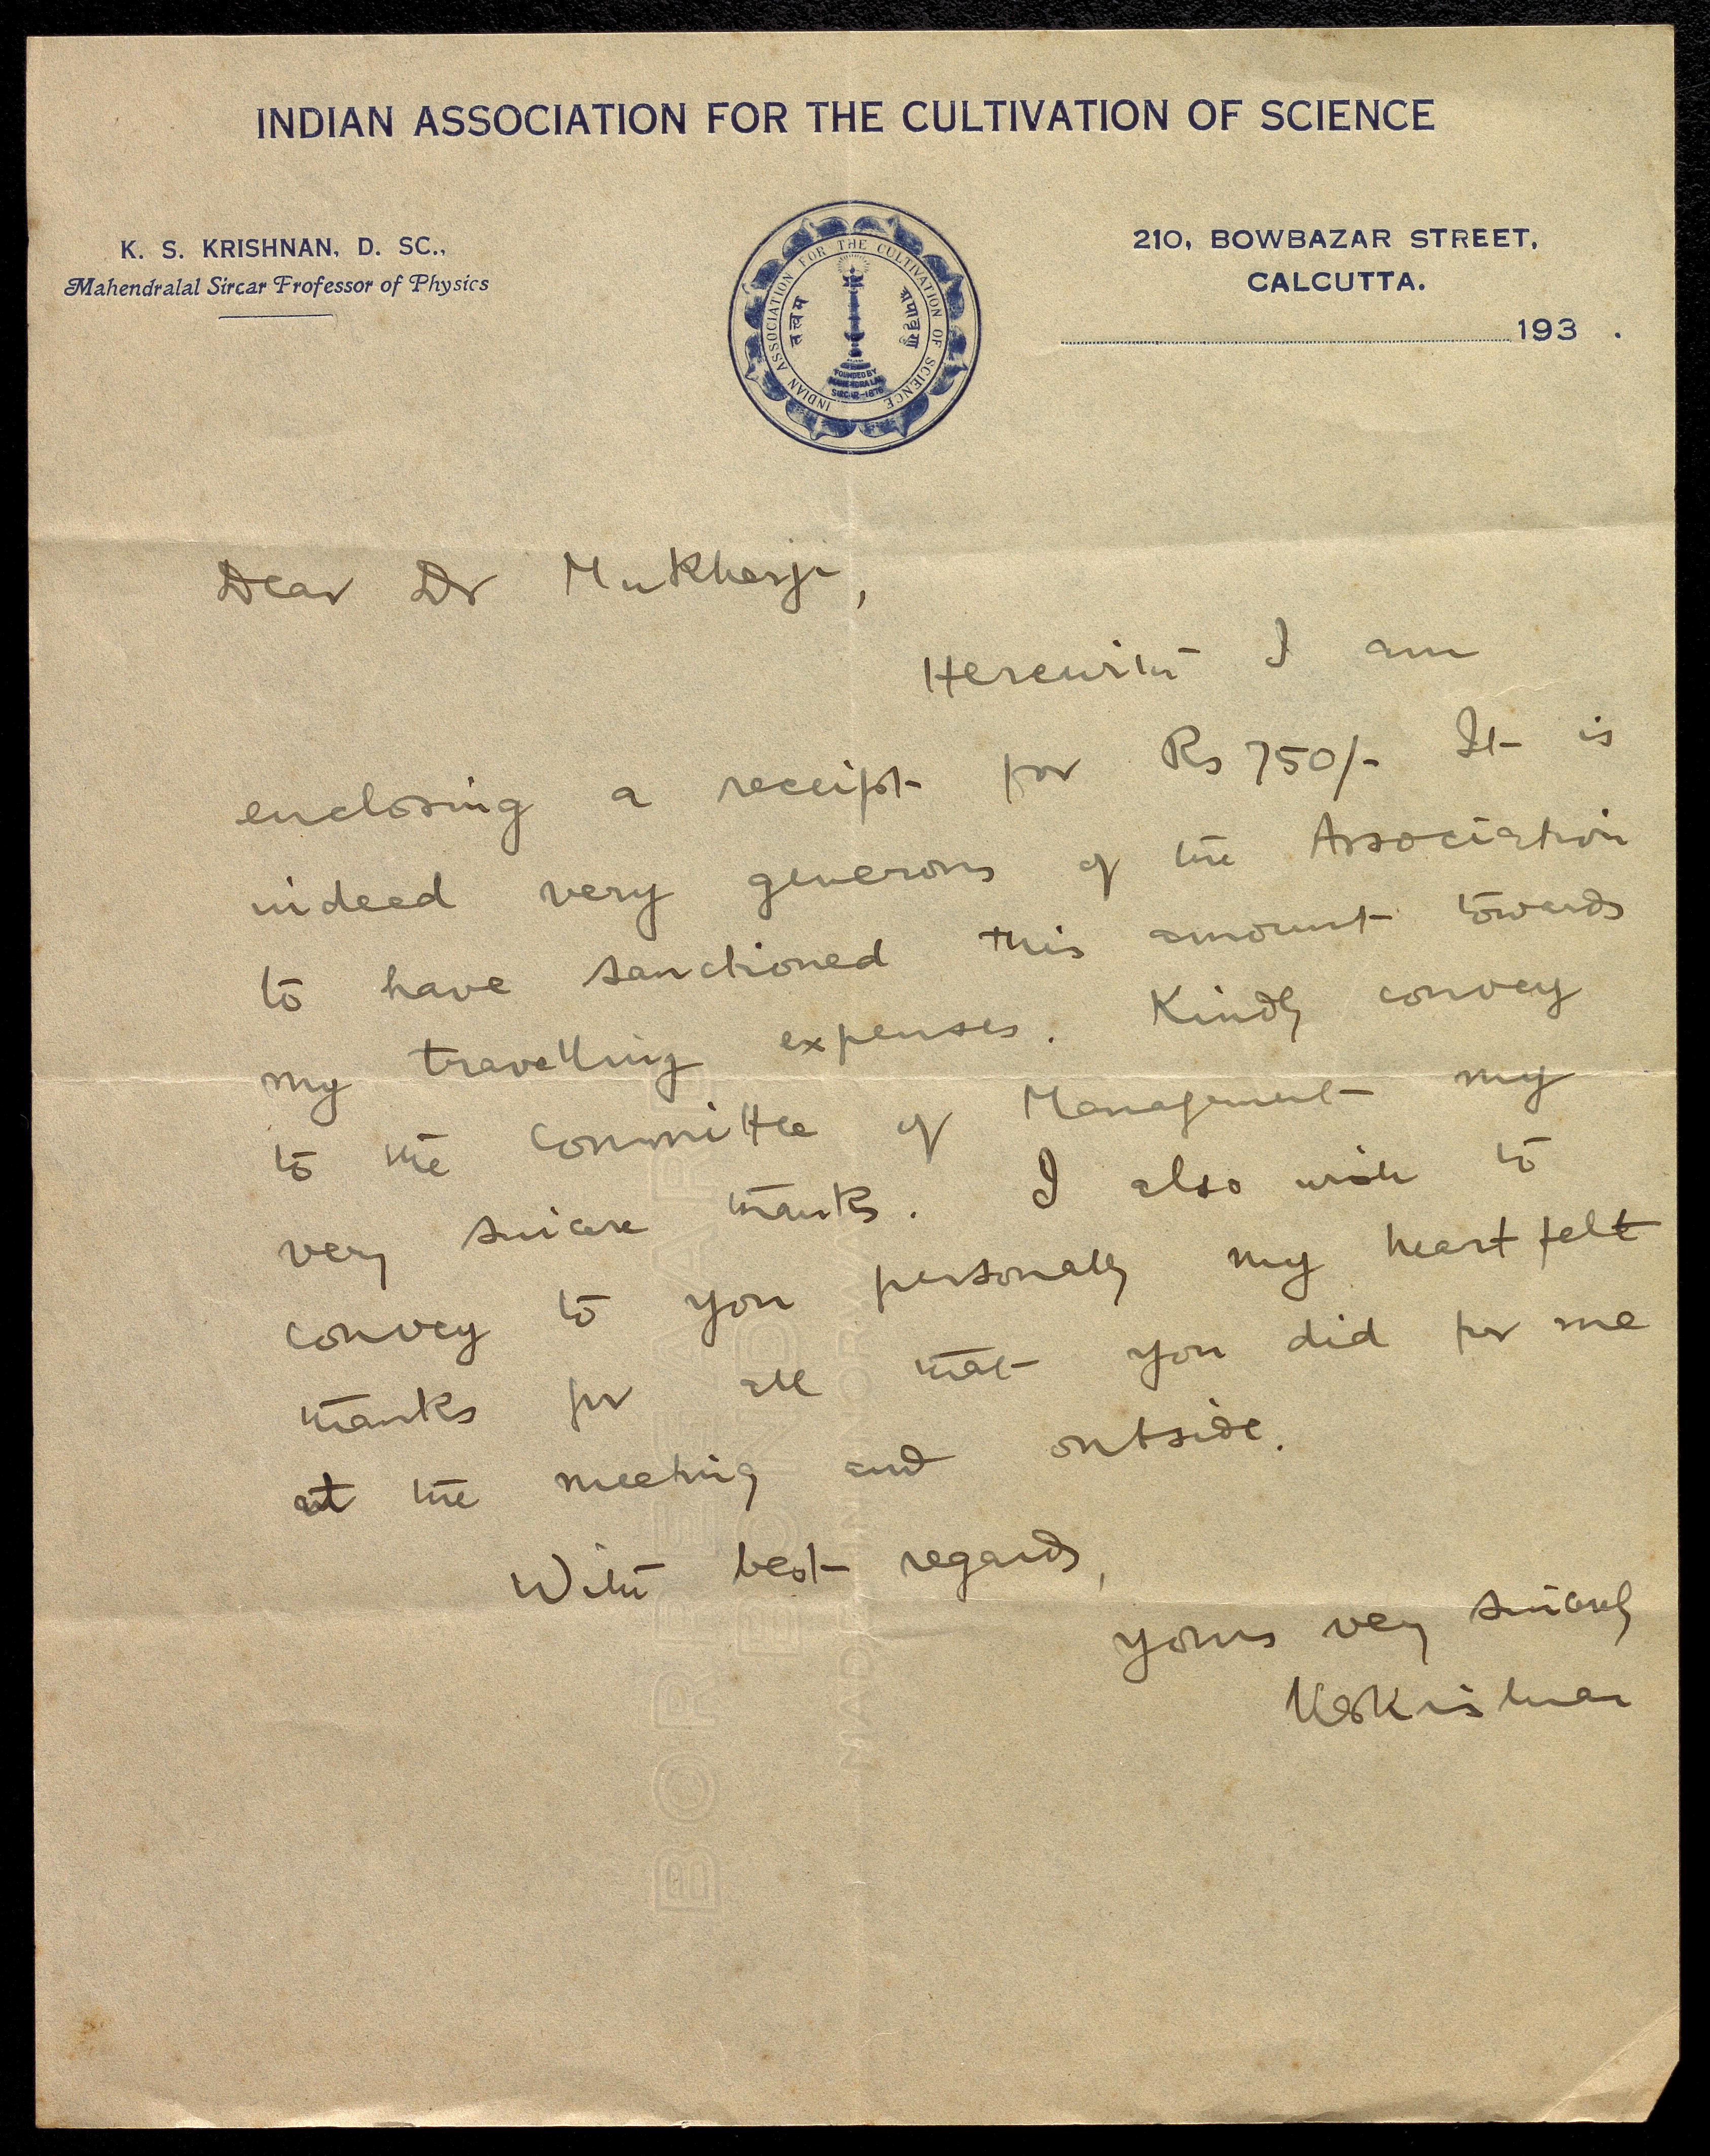 INDIAN ASSOCIATION FOR THE CULTIVATION OF SCIENCE
K. S. KRISHNAN, D. SC.,
Mahendralal Sircar Professor of Physics
INDIAN ASSOCIATION FOR THE CULTIVATION OF SCIENCE
FOUNDED BY
MAHENDRA LAL
SIRCAR-1876
210, BOWBAZAR STREET,
CALCUTTA.
193 .
Dear Dr Mukherji,
Herewith I am
enclosing a receipt for Rs 750/- It is
indeed very generous of the Association
to have sanctioned this amount towards
my travelling expenses. Kindly convey
to the Committee of Management my
very sincere thanks. I also wish to
convey to you personally my heart felt
thanks for all that you did for me
at the meeting and outside.
With best regards,
yours very sincerely
KSKrishnan